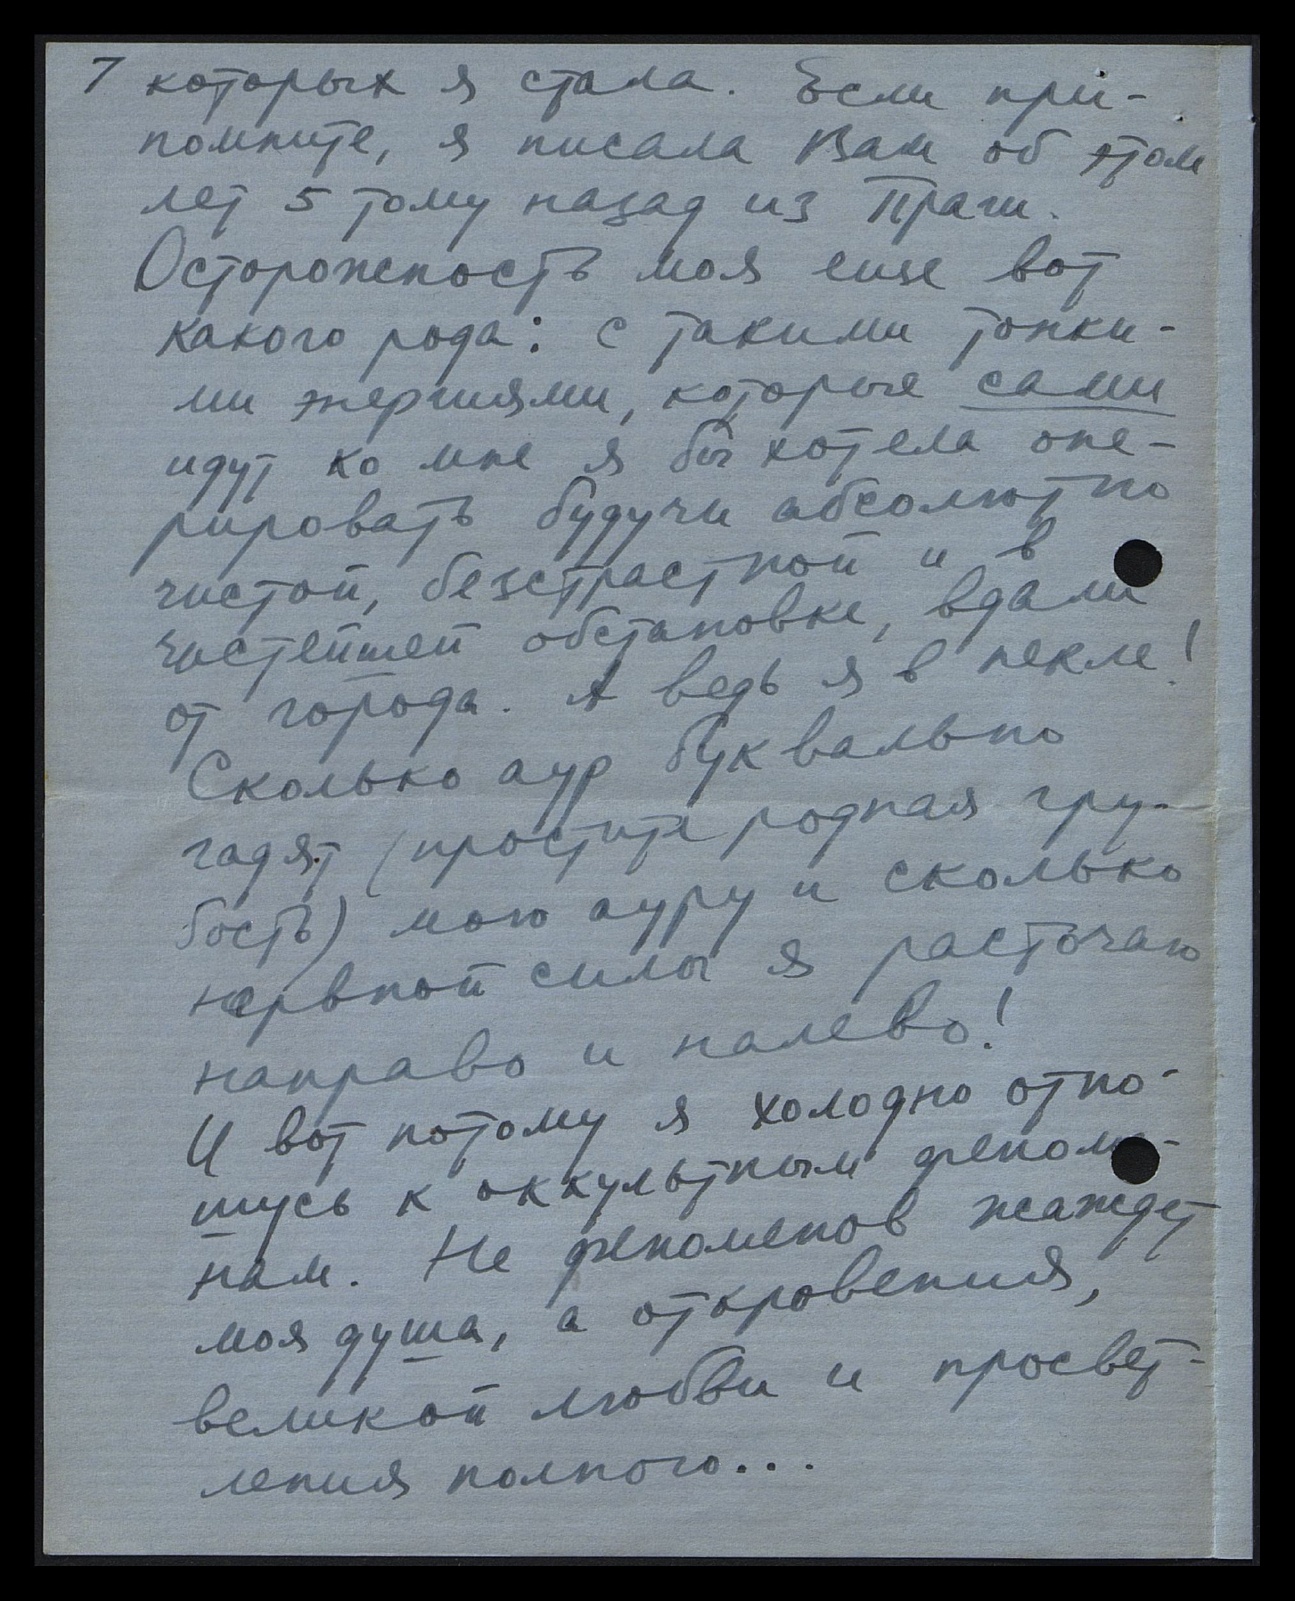 7 которых я стала. Если при-
помните, я писала Вам об этом
лет 5 тому назад из Праги.
Осторожность моя еще вот
какого рода: с такими тонки-
ми энергиями, которые сами
идут ко мне я бы хотела опе-
рировать будучи абсолютно
чистой, безстрастной и в
чистейшей обстановке, вдали
от города. А ведь я в пекле!
Сколько аур буквально
гадят (простите родная гру-
бость) мою ауру и сколько
нервной силы я расточаю
направо и налево!
И вот потому я холодно отно-
шусь к оккультным феноме-
нам. Не феноменов жаждет
моя душа, а откровения,
великой любви и просвет-
ления полного...